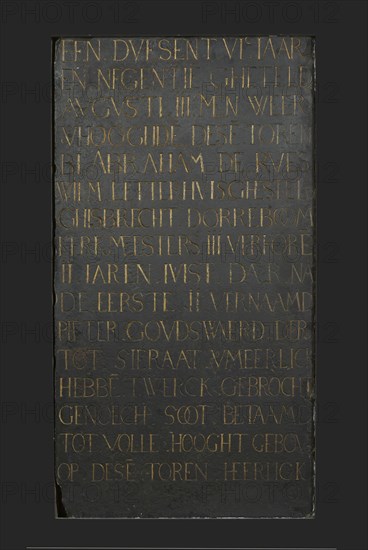 TEN DVESENT VIC IAAR
EN NEGENTIE GHETELT
AVGVSTI IIII MEN WELT
VHOOGHDE DESE TOREN
BI ABRAHAM DE
WIEM
GHISBRECHT DORREBOOM
KERKMEISTERS III VERKORE
II IAREN IVIST DAER NA
DE EERSTE II VERNAAMD
PIETER GOVDSWAERD DER
TOT SIERAAT VMEERLICK
HEBBĒ TWERCK GEBROCHT
GENOECH SOOT BETAAMD
TOT VOLLE HOOGHT GEBOV
OP DESĒ TOREN HEERLICK